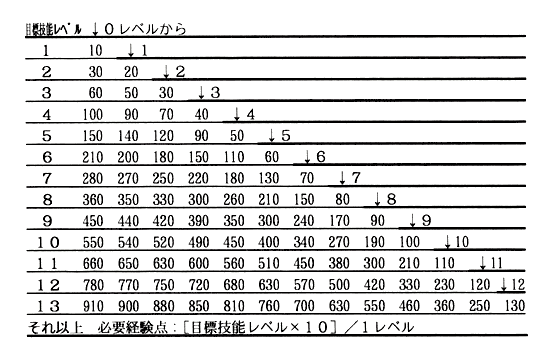 目標技能レベル ↓0レベルから
1 10 ↓1
2 30 20 ↓2
3 60 50 30 ↓3
4 100 90 70 40 ↓4
5 150 140 120 90 50 ↓5
6 210 200 180 150 110 60 ↓6
7 280 270 250 220 180 130 70 ↓7
8 360 350 330 300 260 210 150 80 ↓8
9 450 440 420 390 350 300 240 170 90 ↓9
10 550 540 520 490 450 400 340 270 190 100 ↓10
11 660 650 630 600 560 510 450 380 300 210 110 ↓11
12 780 770 750 720 680 630 570 500 420 330 230 120 ↓12
13 910 900 880 850 810 760 700 630 550 460 360 250 130
それ以上 必要経験点：[目標技能レベル×10]／1レベル